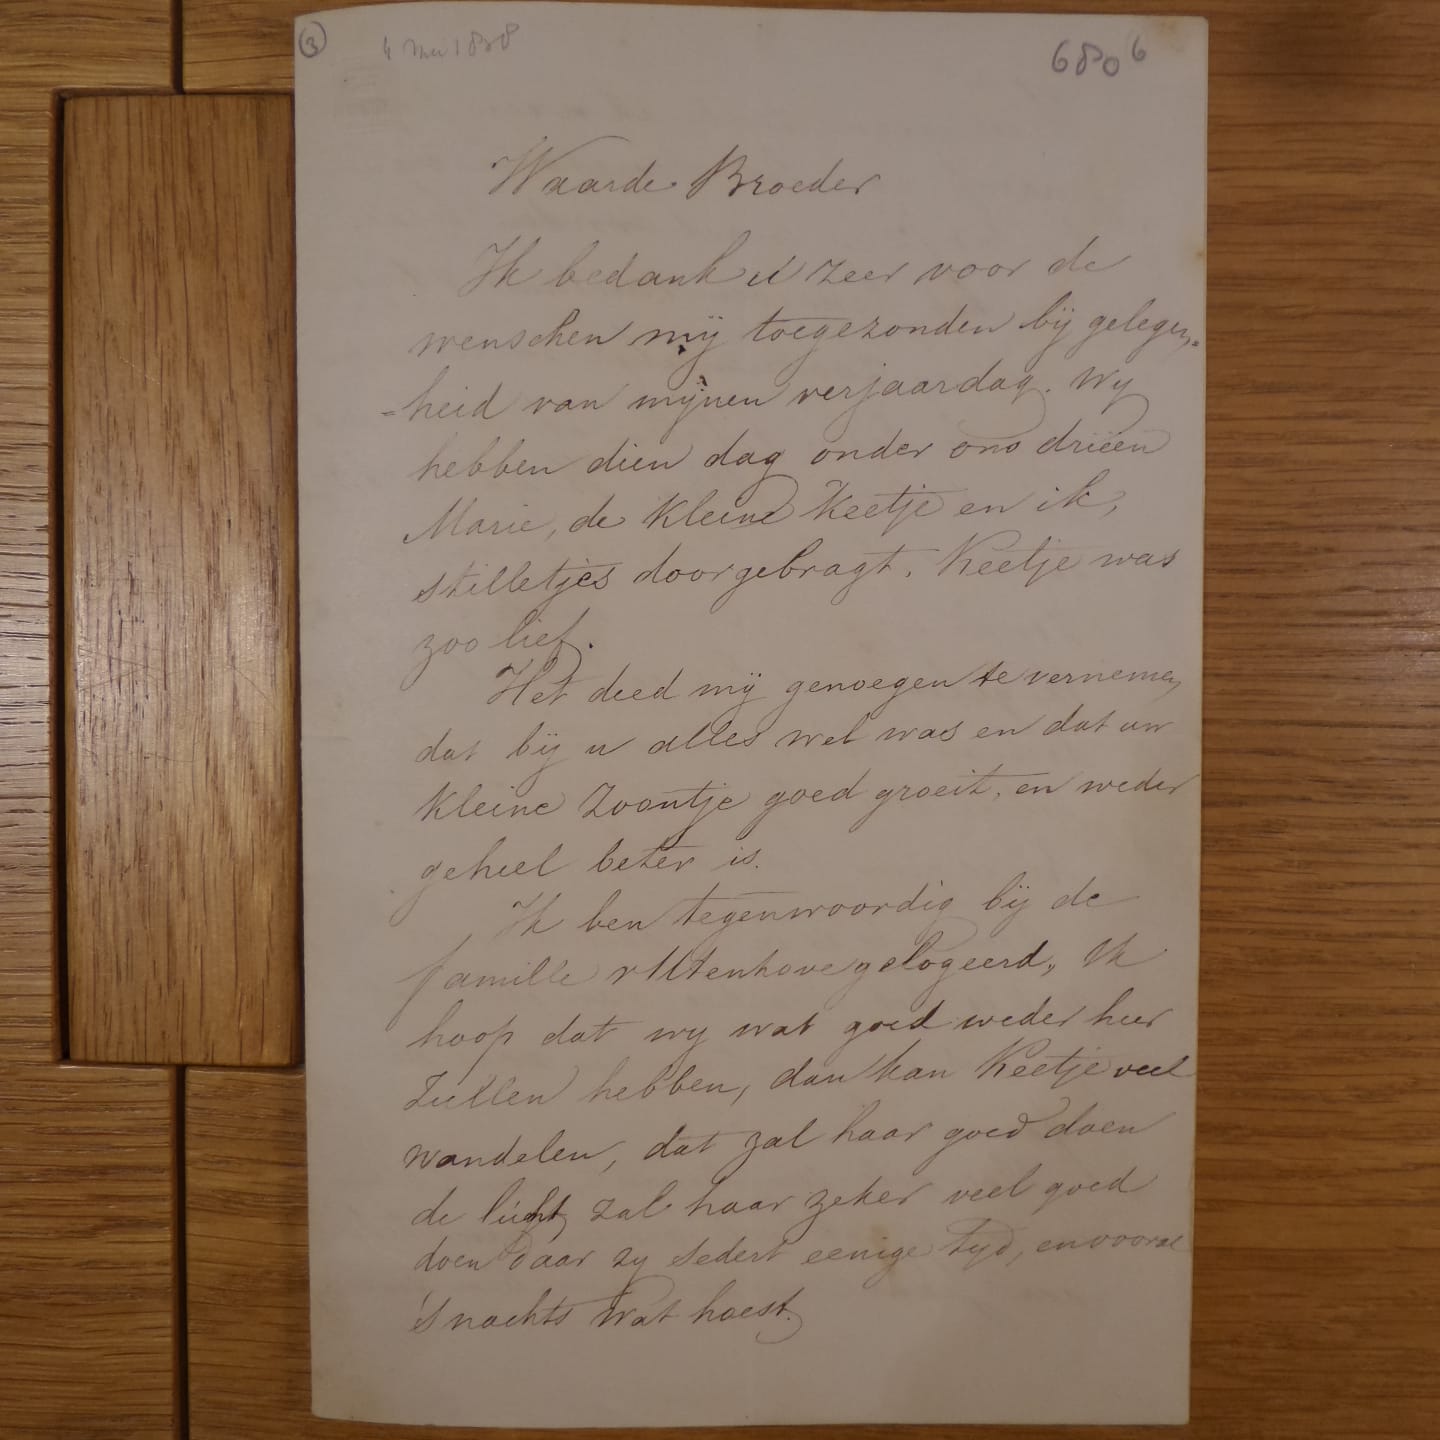 3
4 Mei 1838
680 6
Waarde Broeder
Ik bedank U zeer voor de
wenschen mij toegezonden bij gelegen,=
=heid van mijnen verjaardag. Wy
hebben dien dag onder ons drieën
Marie, de kleine Keetje en ik,
stilletjes doorgebragt. Keetje was
zoo lief.
Het deed mij genoegen te vernemen
dat bij u alles wel was en dat uw
kleine Zoontje goed groeit, en weder
geheel beter is.
Ik ben tegenwoordig bij de
famille Uttenhove gelogeerd, Ik
hoop dat wy wat goed weder hier
Zullen hebben, dan kan Keetje veel
wandelen, dat zal haar goed doen
de lucht zal haar zeker veel goed
doen daar zy sedert eenige tyd, en vooral
's nachts wat hoest.